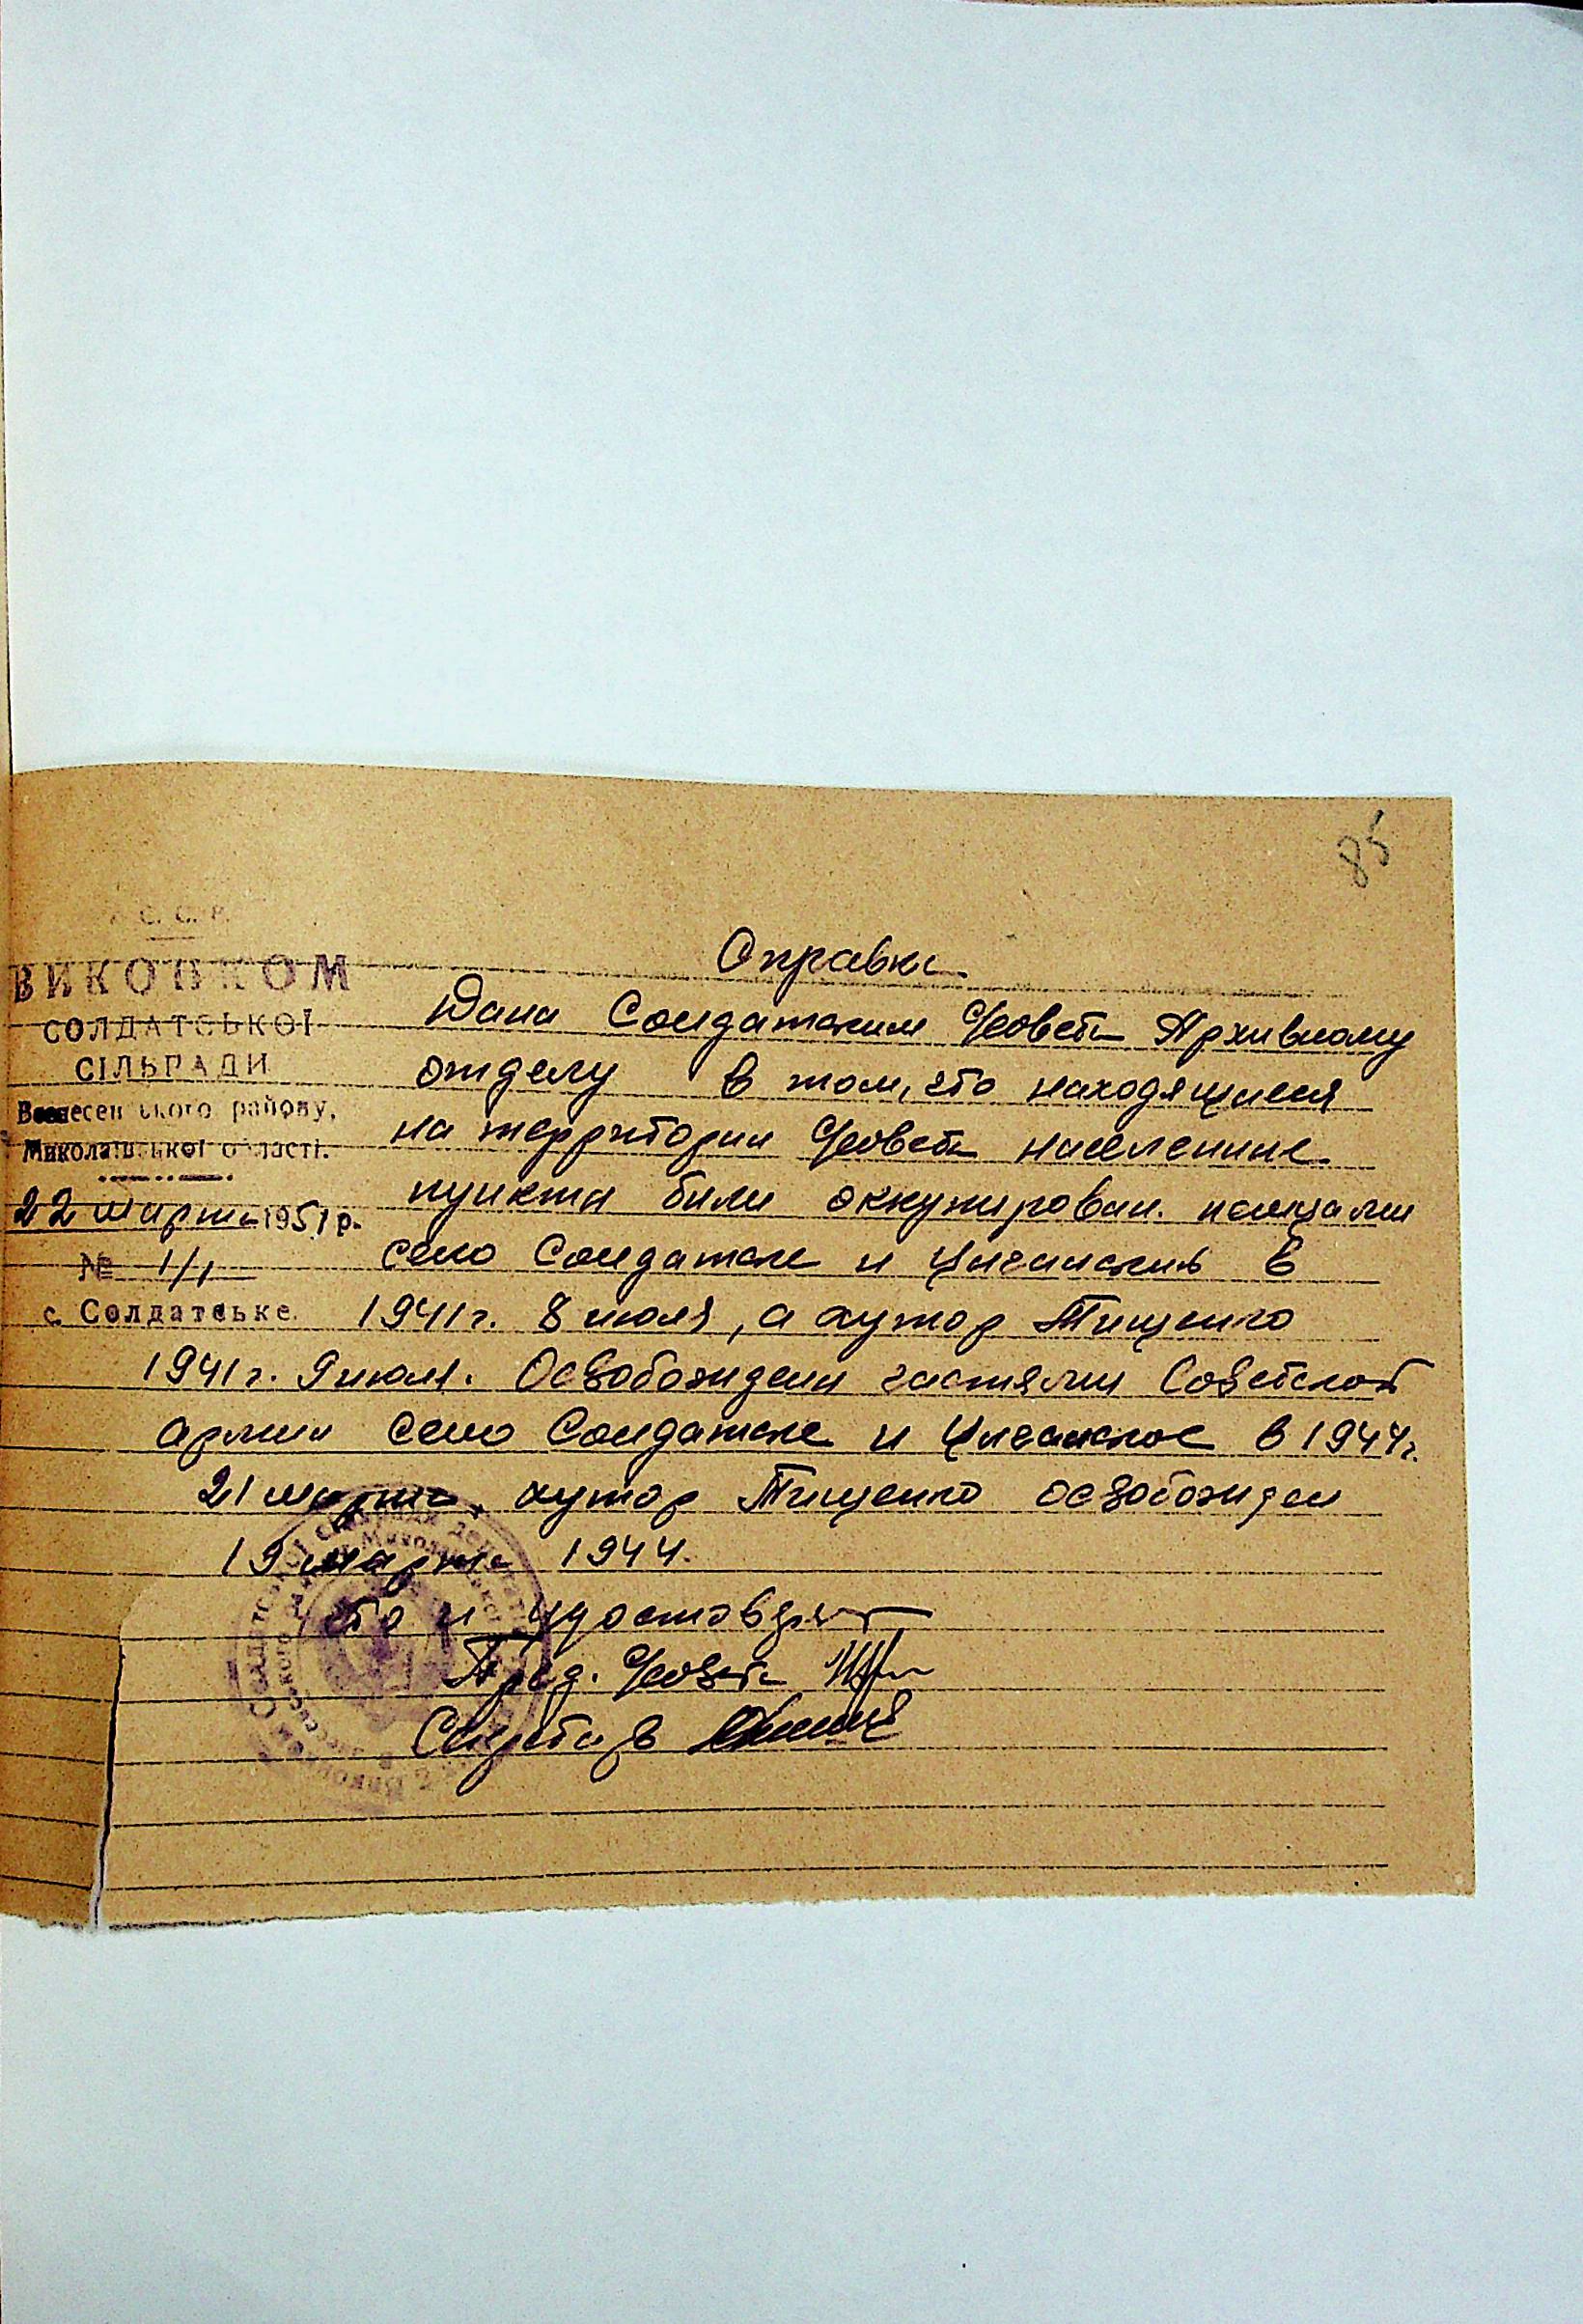 85
С. С. Р.
ВИКОНКОМ
СОЛДАТСЬКОЇ
СІЛЬРАДИ
Вознесенського району,
Миколаївської області.
22 марта 1951 р.
№ 1/1
с. Солдатське.
Справка
Дана Солдатским С/Совета Архивному
отделу в том, что находящиеся
на территории С/Совета населенние
пункти били оккупирован. немцами
село Солдатске и Циганский в
1941 г. 8 июля, а хутор Тищенко
1941 г. 9 июля. Освобождени частями Советской
армии село Солдатске и Циганское в 1944 г.
21 марта, хутор Тищенко освобожден
19 марта 1944.
что и удостовдяет
Пред. С/Совета
Секретарь